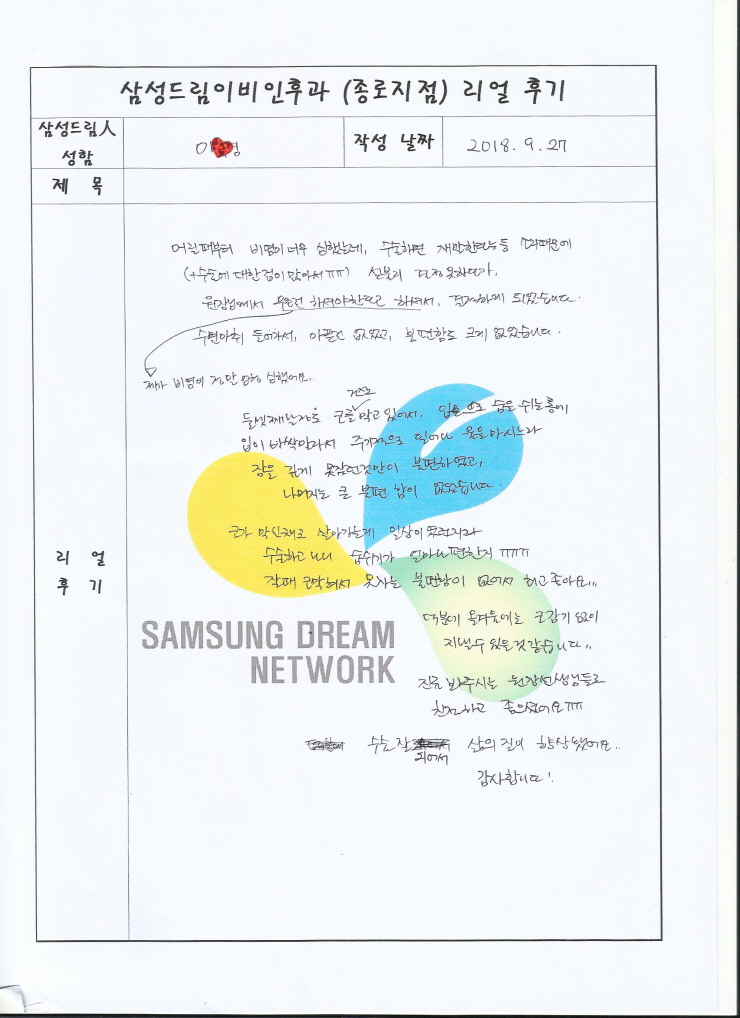 삼성드림이비인후과 (종로지점) 리얼 후기
삼성드림人
성함
이 영
작성 날짜
2018. 9. 27
제 목
어릴때부터 비염이 너무 심했는데, 수술하면 재발한다는 등 때문에
(+수술에 대한 겁이 많아서ㅠㅠ) 섣불리 못하다가,
원장님께서 무조건 하셔야한다고 하셔서, 진행하게 되었습니다.
수면마취 들어가서, 아픈건 없었고, 불편함도 크게 없었습니다.
제가 비염이 정말 엄청 심했어요.
거즈로
둘셋째날정도 코를 막고 있어서, 입으로 숨을 쉬는통에
입이 바싹말라서 주기적으로 일어나 물을마시느라
잠을 깊게 못잤던것만이 불편하였고,
나머지는 큰 불편함이 없었습니다.
코가 막힌채로 살아가는게 일상이 되었던지라
수술하고 나니 숨쉬기가 얼마나 편한지 ㅠㅠㅠ
잘때 코막혀서 못자는 불편함이 없어서 최고좋아요..
덕분에 올겨울에는 코감기 없이
지낼수 있을것같습니다..
진료 봐주시는 원장선생님들도
친절하고 좋으셨어요ㅠㅠ
수술 잘 되어서 삶의 질이 향상됐어요..
감사합니다!
리 얼
후 기
SAMSUNG DREAM
NETWORK